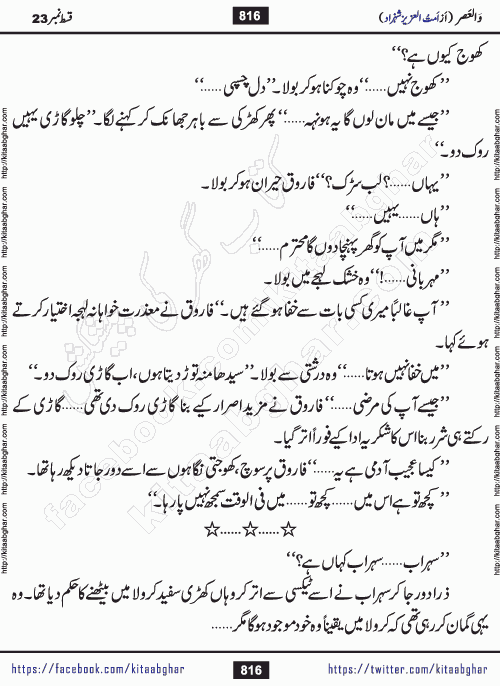 وَالعَصر (اَز اَمتُ العزیز شہزاد) 816 قسط نمبر 23
کھوج کیوں ہے؟‘‘
’’کھوج نہیں......‘‘وہ چوکنا ہو کر بولا۔’’دل چسپی......‘‘
’’جیسے میں مان لوں گا یہ ہونہہ......‘‘ پھر کھڑکی سے باہر جھانک کر کہنے لگا۔’’چلو گاڑی یہیں
روک دو۔‘‘
’’یہاں......؟ لب سڑک؟‘‘ فاروق حیران ہو کر بولا۔
’’ہاں......یہیں......‘‘
’’مگر میں آپ کو گھر پہنچا دوں گا محترم......‘‘
’’مہربانی......!‘‘وہ خشک لہجے میں بولا۔
’’آپ غالباً میری کسی بات سے خفا ہو گئے ہیں۔‘‘ فاروق نے معذرت خواہانہ لہجہ اختیار کرتے
ہوئے کہا۔
’’میں خفا نہیں ہوتا......‘‘وہ درشتی سے بولا۔’’سیدھا منہ توڑ دیتا ہوں، اب گاڑی روک دو۔‘‘
’’جیسے آپ کی مرضی......‘‘ فاروق نے مزید اصرار کیے بنا گاڑی روک دی تھی......گاڑی کے
رکتے ہی شرر بنا اس کا شکریہ ادا کیے فوراً اتر گیا۔
’’کیسا عجیب آدمی ہے یہ......‘‘ فاروق پر سوچ، کھوجتی نگاہوں سے اسے دور جاتا دیکھ رہا تھا۔
’’کچھ تو ہے اس میں......کچھ تو......میں فی الوقت سمجھ نہیں پا رہا۔‘‘
☆......☆......☆
’’سہراب......سہراب کہاں ہے؟‘‘
ذرا دور جا کر سہراب نے اسے ٹیکسی سے اتر کر وہاں کھڑی سفید کرولا میں بیٹھنے کا حکم دیا تھا۔ وہ
یہی گمان کر رہی تھی کہ کرولا میں یقیناً وہ خود موجود ہو گا مگر......
https://facebook.com/kitaabghar 816 https://twitter.com/kitaabghar
http://kitaabghar.com